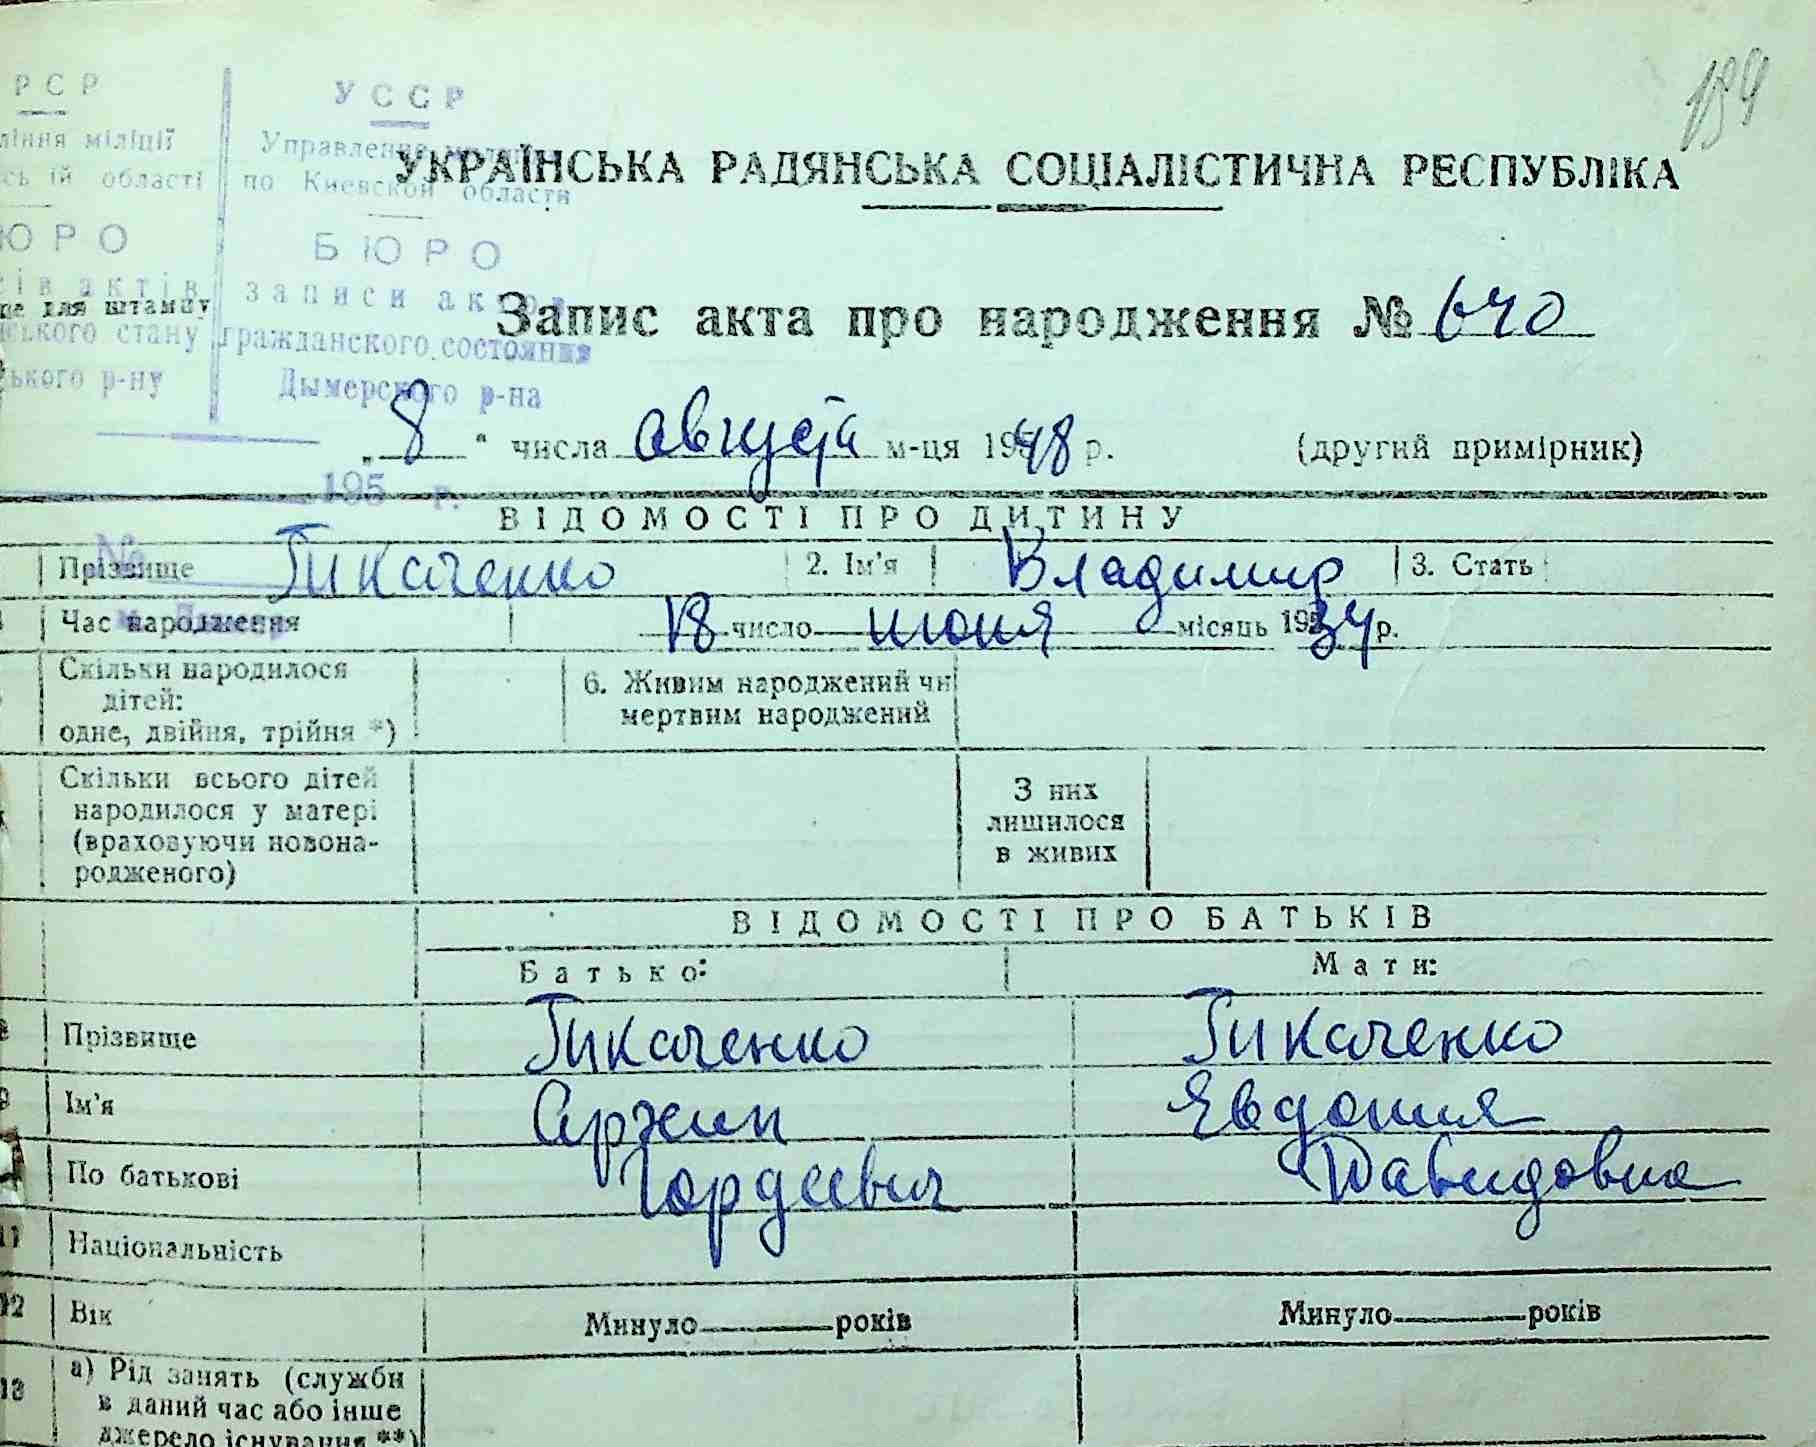 РСР
УССР
ління міліції
Управление милиции
сь ій області
по Киевской области
УКРАЇНСЬКА РАДЯНСЬКА СОЦІАЛІСТИЧНА РЕСПУБЛІКА
ЮРО
БЮРО
сів актів
записи актов
це для штампу
Запис акта про народження № 640
нського стану
гражданского состояния
ського р-ну
Дымерского р-на
„ 8 " числа августа м-ця 1948 р. (другий примірник)
195 г.
ВІДОМОСТІ ПРО ДИТИНУ
№
Прізвище Тикаченко 2. Ім'я Владимир 3. Стать
Час народження 18 число июня місяць 1934 р.
Скільки народилося дітей: одне, двійня, трійня *) 6. Живим народжений чи мертвим народжений
Скільки всього дітей народилося у матері (враховуючи новонародженого) З них лишилося в живих
ВІДОМОСТІ ПРО БАТЬКІВ
Батько: Мати:
Прізвище Тикаченко Тикаченко
Ім'я Архип Евдокия
По батькові Гордеевич Давидовна
11 Національність
12 Вік Минуло років Минуло років
13 а) Рід занять (служби в даний час або інше джерело існування **)